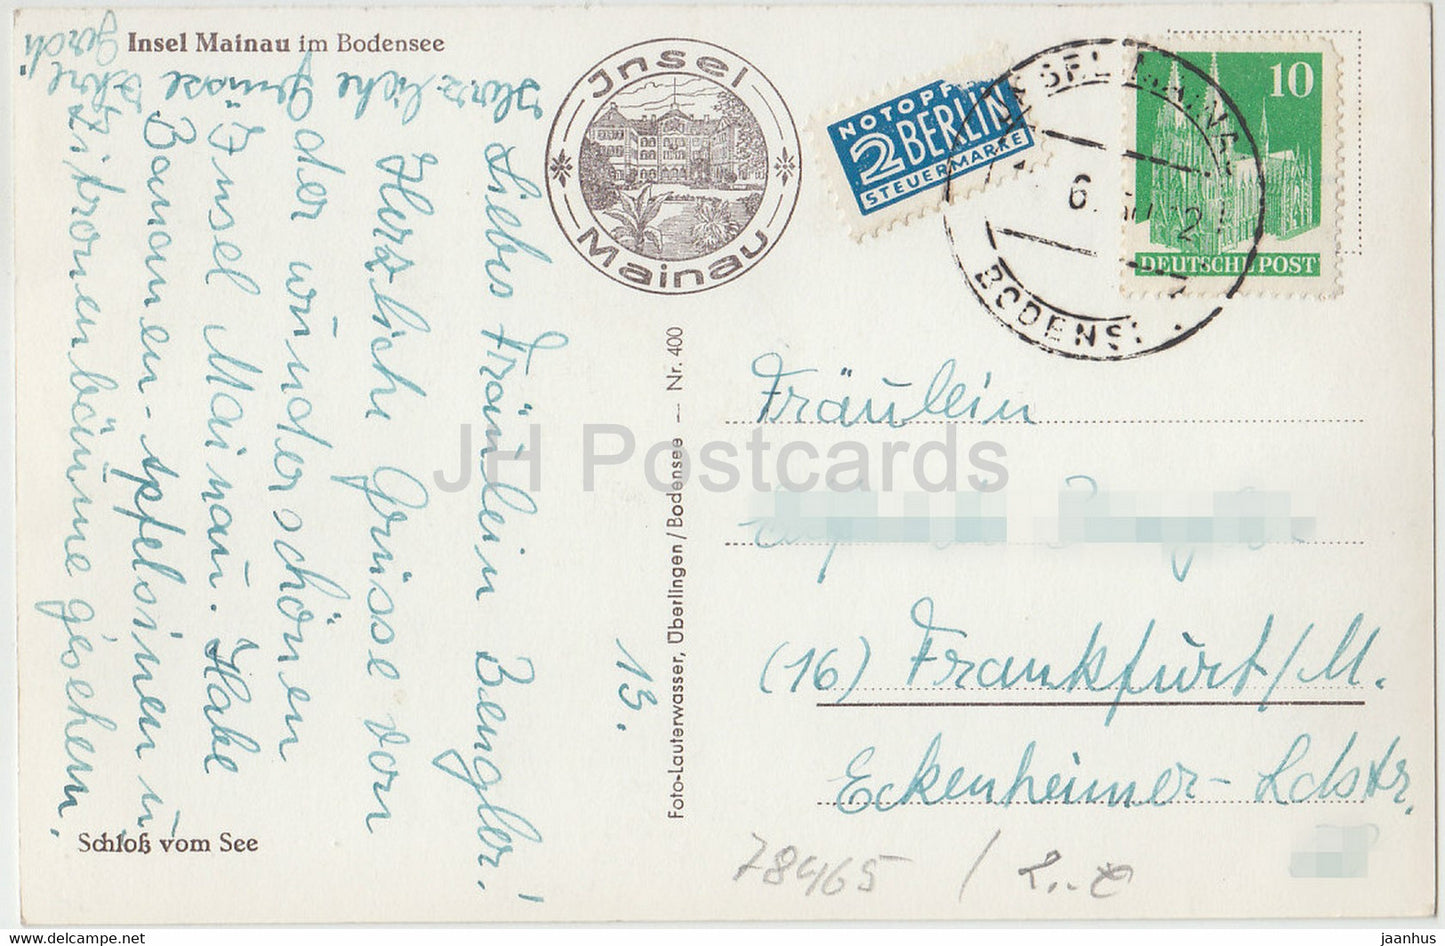 Insel Mainau im Bodensee
Jnsel
Mainau
NOTOPFER
2 BERLIN
STEUERMARKE
10
DEUTSCHE POST
INSEL MAINAU
6. 50.12
BODENS
13.
Liebes Fräulein Bengler!
Herzliche Grüsse von
der wunderschönen
Insel Mainau. Habe
Bananen- Apfelsinen u.
Zitronenbäume gesehen.
Herzliche Grüsse Ihre
Gerdi
Schloß vom See
Foto-Lauterwasser, Überlingen/Bodensee — Nr. 400
Fräulein
(16) Frankfurt/M.
Eckenheimer-Ldstr.
78465 /
JH Postcards
www.delcampe.net
jaanhus